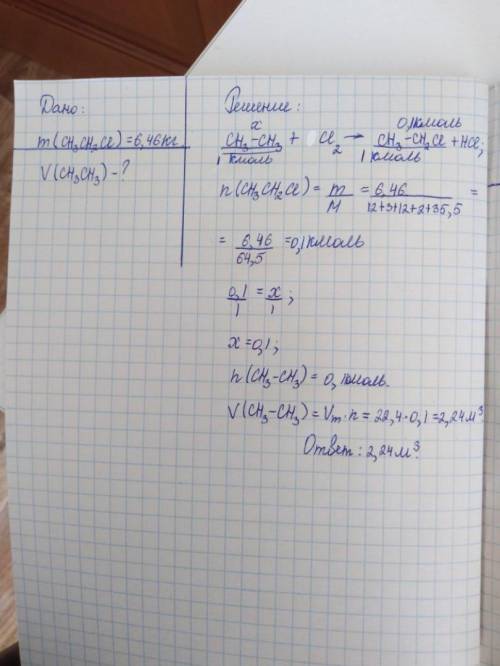 Дано:
m(CH₃CH₂Cl)=6,46кг
V(CH₃CH₃)-?
Решение:
x 0,1кмоль
CH₃-CH₃ + Cl₂ → CH₃-CH₂Cl + HCl;
1 кмоль 1 кмоль
n(CH₃CH₂Cl) = m/M = 6,46/12+3+12+2+35,5 =
= 6,46/64,5 =0,1кмоль
0,1/1 = x/1;
x=0,1;
n(CH₃-CH₃)=0,1кмоль.
V(CH₃-CH₃)=Vm·n=22,4·0,1=2,24м³
Ответ: 2,24м³.